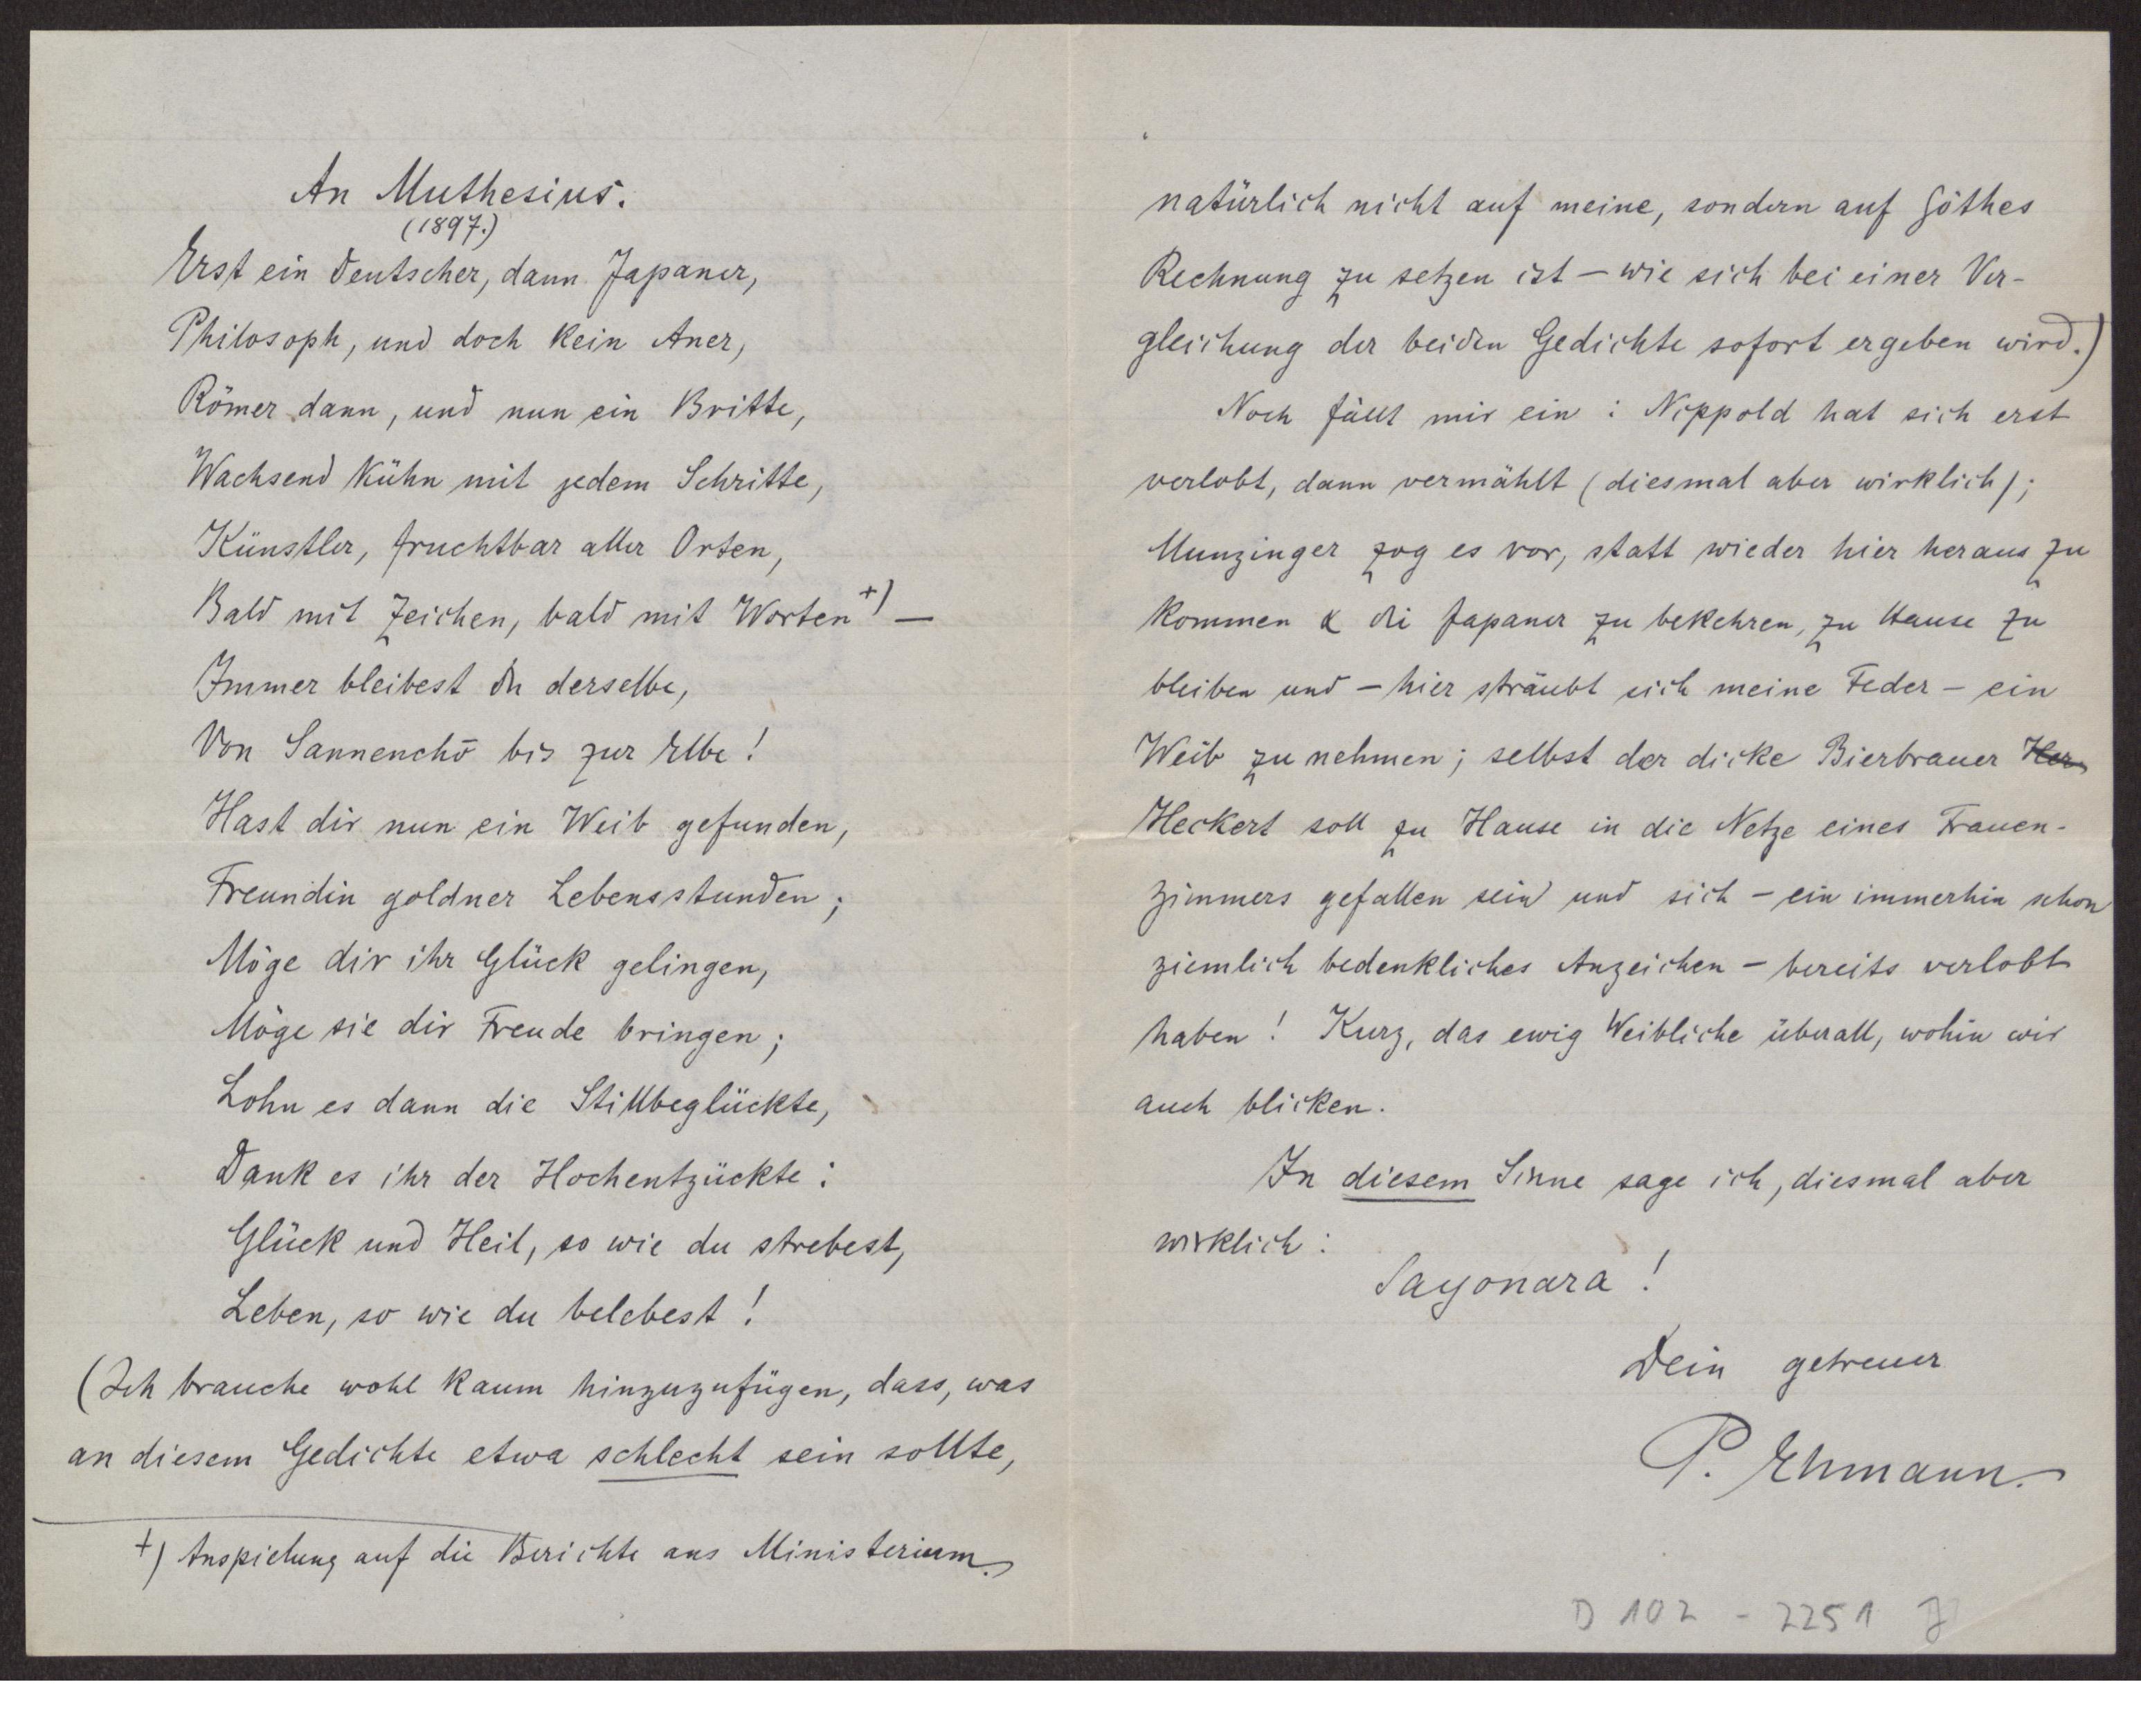 An Muthesius.
(1897.)
Erst ein Deutscher, dann Japaner,
Philosoph, und doch kein Aner,
Römer dann, und nun ein Britte,
Wachsend kühn mit jedem Schritte,
Künstler, fruchtbar aller Orten,
Bald mit Zeichen, bald mit Worten +) —
Immer bleibest du derselbe,
Von Sannenchō bis zur Elbe!
Hast dir nun ein Weib gefunden,
Freundin goldner Lebensstunden;
Möge dir ihr Glück gelingen,
Möge sie dir Freude bringen;
Lohn es dann die Stillbeglückte,
Dank es ihr der Hochentzückte:
Glück und Heil, so wie du strebest,
Leben, so wie du belebest!
(Ich brauche wohl kaum hinzuzufügen, dass, was
an diesem Gedichte etwa schlecht sein sollte,
+) Anspielung auf die Berichte ans Ministerium.
natürlich nicht auf meine, sondern auf Göthes
Rechnung zu setzen ist — wie sich bei einer Ver-
gleichung der beiden Gedichte sofort ergeben wird.)
Noch fällt mir ein: Nippold hat sich erst
verlobt, dann vermählt (diesmal aber wirklich);
Munzinger zog es vor, statt wieder hier heraus zu
kommen & die Japaner zu bekehren, zu Hause zu
bleiben und — hier sträubt sich meine Feder — ein
Weib zu nehmen; selbst der dicke Bierbrauer Her
Heckert soll zu Hause in die Netze eines Frauen-
zimmers gefallen sein und sich — ein immerhin schon
ziemlich bedenkliches Anzeichen — bereits verlobt
haben! Kurz, das ewig Weibliche überall, wohin wir
auch blicken.
In diesem Sinne sage ich, diesmal aber
wirklich:
Sayonara!
Dein getreuer
P. Ehmann.
D 102 - 2251 J